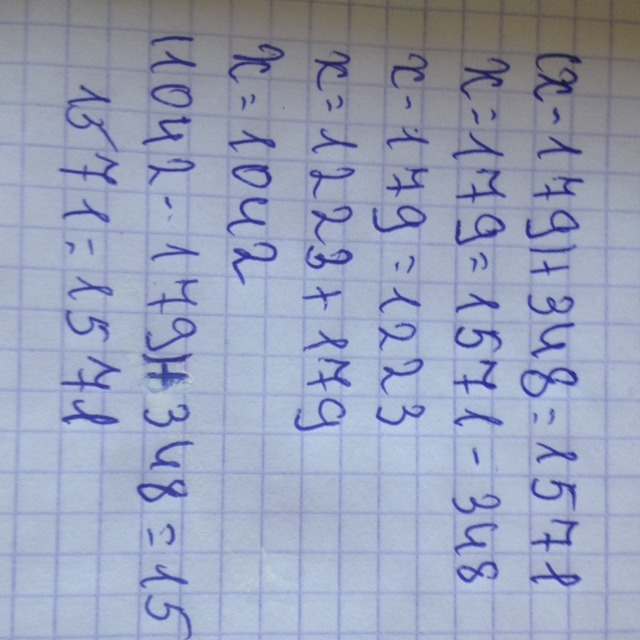 (x-179)+348=1571
x=179=1571-348
x-179=1223
x=1223+179
x=1042
(1042-179)+348=15
1571=1571